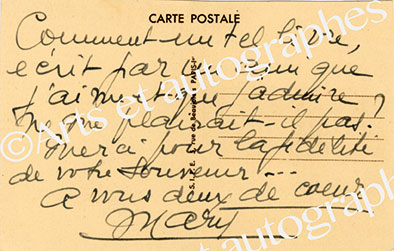 CARTE POSTALE
Comment un tel livre,
écrit par un ami que
j'aime et que j'admire
ne me plairait-il pas?
Merci pour la fidélité
de votre souvenir...
A vous deux de coeur
Mary
S.I.P.E. 2, rue de PARIS
©Arts et autographes